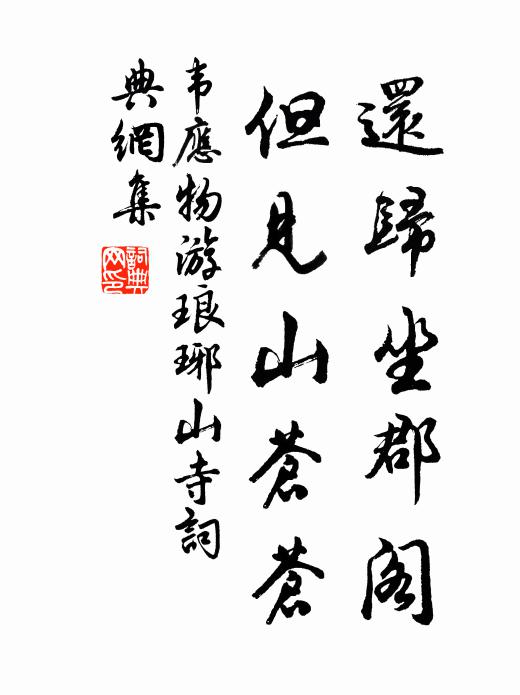 還歸坐郡閣
但見山蒼蒼
韦應物游琅琊山寺詞
典網集
詞典
网印